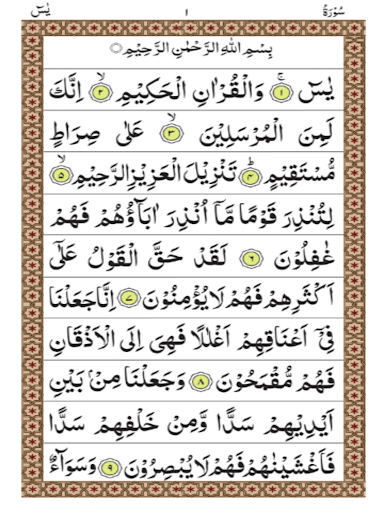 سُوْرَةُ ١ يٰسٓ
بِسْمِ اللّٰهِ الرَّحْمٰنِ الرَّحِيْمِ ○
يٰسٓ ۚ ۝١ وَالْقُرْاٰنِ الْحَكِيْمِ ۙ ۝٢ اِنَّكَ
لَمِنَ الْمُرْسَلِيْنَ ۙ ۝٣ عَلٰى صِرَاطٍ
مُّسْتَقِيْمٍ ؕ ۝٤ تَنْزِيْلَ الْعَزِيْزِ الرَّحِيْمِ ۙ ۝٥
لِتُنْذِرَ قَوْمًا مَّآ اُنْذِرَ اٰبَآؤُهُمْ فَهُمْ
غٰفِلُوْنَ ۝٦ لَقَدْ حَقَّ الْقَوْلُ عَلٰٓى
اَكْثَرِهِمْ فَهُمْ لَا يُؤْمِنُوْنَ ۝٧ اِنَّا جَعَلْنَا
فِيْٓ اَعْنَاقِهِمْ اَغْلٰلًا فَهِيَ اِلَى الْاَذْقَانِ
فَهُمْ مُّقْمَحُوْنَ ۝٨ وَجَعَلْنَا مِنْۢ بَيْنِ
اَيْدِيْهِمْ سَدًّا وَّمِنْ خَلْفِهِمْ سَدًّا
فَاَغْشَيْنٰهُمْ فَهُمْ لَا يُبْصِرُوْنَ ۝٩ وَسَوَآءٌ